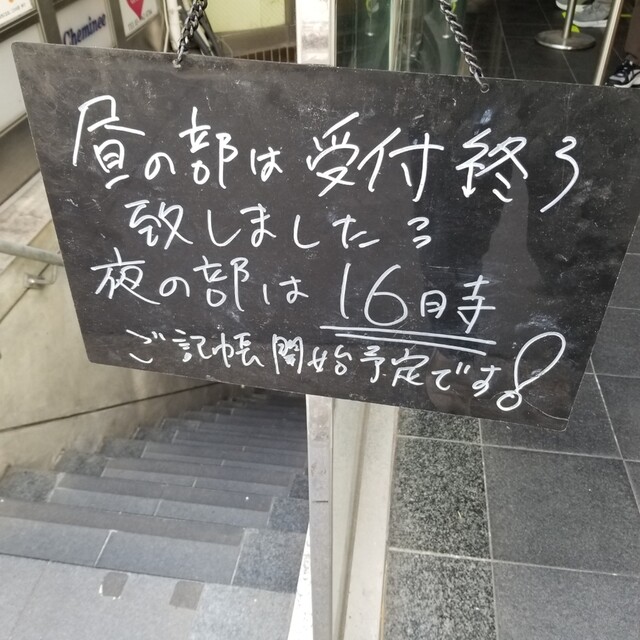 Cheminee
昼の部は受付終了
致しました。
夜の部は16時
ご記帳開始予定です!